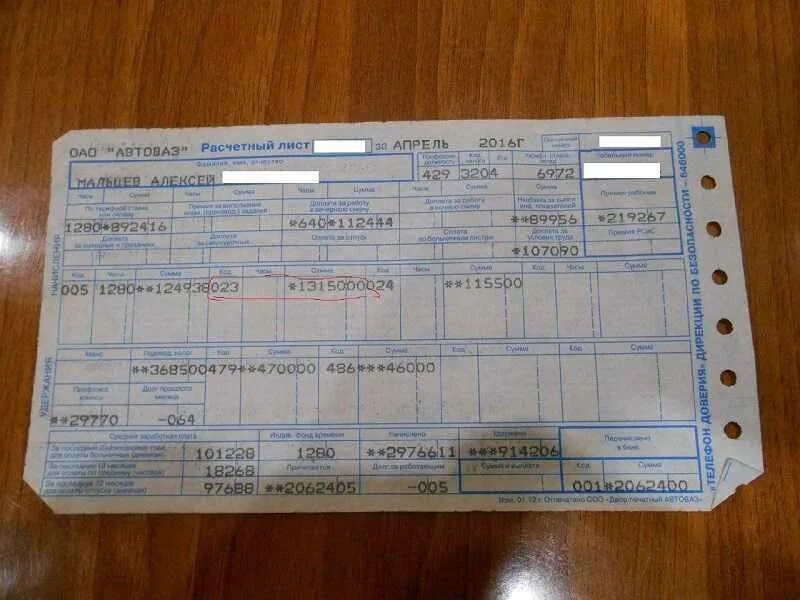 ОАО "АВТОВАЗ" Расчетный лист за АПРЕЛЬ 2016Г
Фамилия, имя, отчество
МАЛЬЦЕВ АЛЕКСЕЙ 429 3204 6972
Часы Сумма Часы Сумма Часы Сумма Часы Сумма Сумма Сумма
По тарифной ставке Премия за выполнение Доплата за работу в вечернюю смену Доплата за работу в ночную смену
1280*892416 *640*112444 **89956 *219267
Доплата Доплата Оплата за отпуск Оплата по больничным листам Доплата за условия труда Премия РСиС
*107090
НАЧИСЛЕНИЯ
Код Часы Сумма Код Часы Сумма Код Часы Сумма Код Часы Сумма
005 1280**124938023 *1315000024 **115500
УДЕРЖАНИЯ
Подоход. налог Код Сумма Код Сумма Код Сумма Код Сумма Код Сумма
**368500479**470000 486***46000
Профсоюз. взносы Долг прошлого месяца
**29770 -064
Средняя заработная плата Индив. фонд времени Начислено Удержано Перечислено в банк
101228 1280 **2976611 ***914206
За последние 12 месяцев 18268 Причитается Долг за работающим Сумма к выплате Код Сумма
За последние 12 месяцев 97688 **2062405 -005 001*2062400
Изм. 01.12 г. Отпечатано ООО «Двор печатный АВТОВАЗ»
«ТЕЛЕФОН ДОВЕРИЯ» ДИРЕКЦИИ ПО БЕЗОПАСНОСТИ – 646000